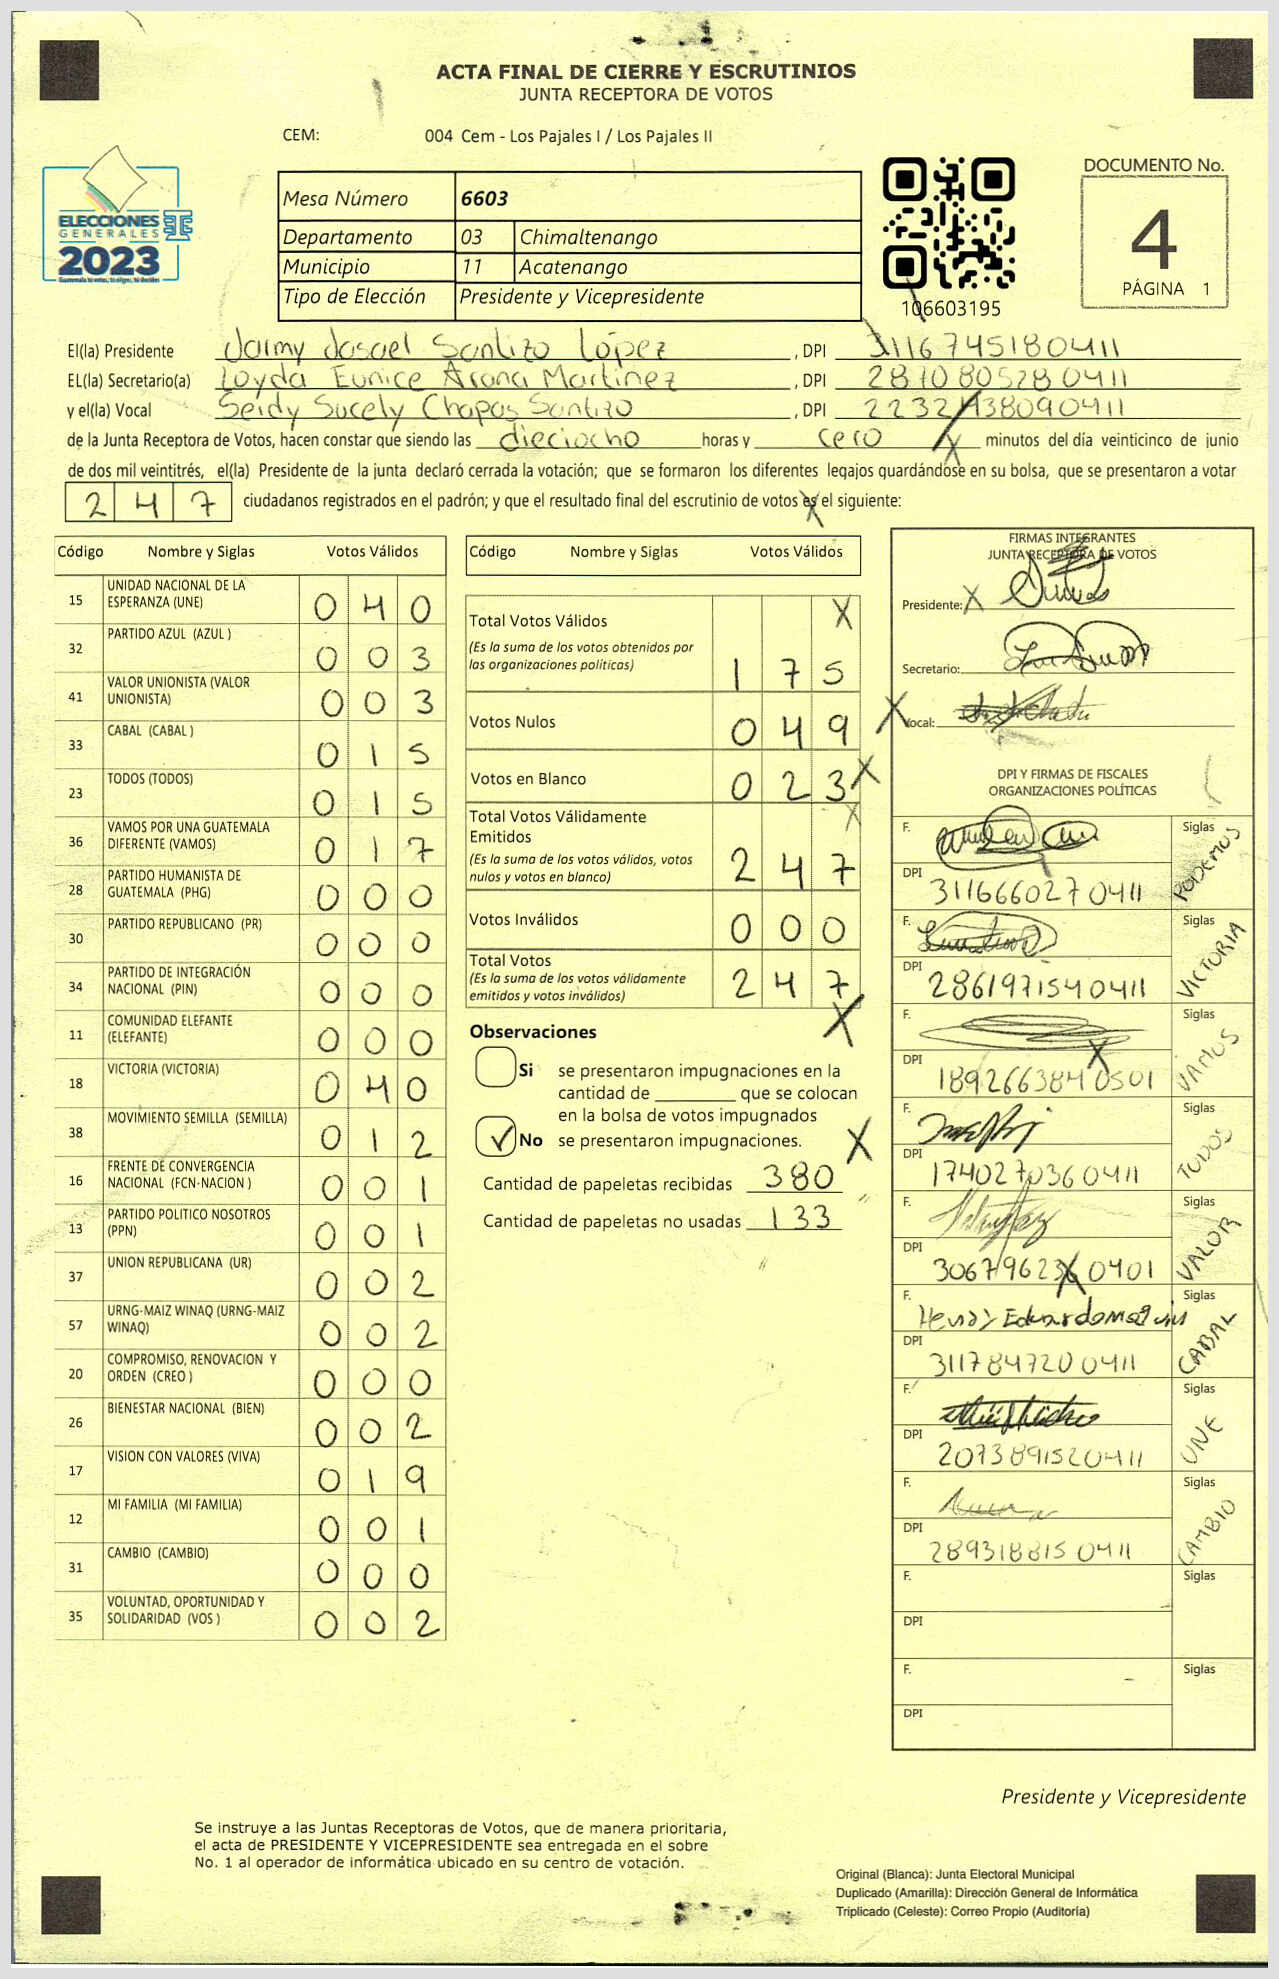 ACTA FINAL DE CIERRE Y ESCRUTINIOS
JUNTA RECEPTORA DE VOTOS
CEM: 004 Cem - Los Pajales I / Los Pajales II
ELECCIONES
GENERALES
2023
Mesa Número 6603
Departamento 03 Chimaltenango
Municipio 11 Acatenango
Tipo de Elección Presidente y Vicepresidente
106603195
DOCUMENTO No.
4
PÁGINA 1
El(la) Presidente Jaimy Josael Santizo López, DPI 3116745180411
EL(la) Secretario(a) Loyda Eunice Arana Martínez, DPI 2870805280411
y el(la) Vocal Seidy Sucely Chapas Santizo, DPI 2232 38090411
de la Junta Receptora de Votos, hacen constar que siendo las dieciocho horas y cero minutos del día veinticinco de junio
de dos mil veintitrés, el(la) Presidente de la junta declaró cerrada la votación; que se formaron los diferentes legajos guardándose en su bolsa, que se presentaron a votar
247 ciudadanos registrados en el padrón; y que el resultado final del escrutinio de votos es el siguiente:
Código Nombre y Siglas Votos Válidos
15 UNIDAD NACIONAL DE LA
ESPERANZA (UNE) 040
32 PARTIDO AZUL (AZUL ) 003
41 VALOR UNIONISTA (VALOR
UNIONISTA) 003
33 CABAL (CABAL ) 015
23 TODOS (TODOS) 015
36 VAMOS POR UNA GUATEMALA
DIFERENTE (VAMOS) 017
28 PARTIDO HUMANISTA DE
GUATEMALA (PHG) 000
30 PARTIDO REPUBLICANO (PR) 000
34 PARTIDO DE INTEGRACIÓN
NACIONAL (PIN) 000
11 COMUNIDAD ELEFANTE
(ELEFANTE) 000
18 VICTORIA (VICTORIA) 040
38 MOVIMIENTO SEMILLA (SEMILLA) 012
16 FRENTE DE CONVERGENCIA
NACIONAL (FCN-NACION ) 001
13 PARTIDO POLITICO NOSOTROS
(PPN) 001
37 UNION REPUBLICANA (UR) 002
57 URNG-MAIZ WINAQ (URNG-MAIZ
WINAQ) 002
20 COMPROMISO, RENOVACION Y
ORDEN (CREO ) 000
26 BIENESTAR NACIONAL (BIEN) 002
17 VISION CON VALORES (VIVA) 019
12 MI FAMILIA (MI FAMILIA) 001
31 CAMBIO (CAMBIO) 000
35 VOLUNTAD, OPORTUNIDAD Y
SOLIDARIDAD (VOS ) 002
Código Nombre y Siglas Votos Válidos
Total Votos Válidos
(Es la suma de los votos obtenidos por
las organizaciones políticas) 175
Votos Nulos 049
Votos en Blanco 023
Total Votos Válidamente
Emitidos
(Es la suma de los votos válidos, votos
nulos y votos en blanco) 247
Votos Inválidos 000
Total Votos
(Es la suma de los votos válidamente
emitidos y votos inválidos) 247
Observaciones
Si se presentaron impugnaciones en la
cantidad de ________ que se colocan
en la bolsa de votos impugnados
✓ No se presentaron impugnaciones.
Cantidad de papeletas recibidas 380
Cantidad de papeletas no usadas 133
FIRMAS INTEGRANTES
JUNTA RECEPTORA DE VOTOS
Presidente:
Secretario:
Vocal:
DPI Y FIRMAS DE FISCALES
ORGANIZACIONES POLÍTICAS
F. Siglas PODEMOS
DPI 3116660270411
F. Siglas VICTORIA
DPI 2861971540411
F. Siglas VAMOS
DPI 1892663840501
F. Siglas TODOS
DPI 1740270360411
F. Siglas VALOR
DPI 3067962360401
F. Henry Eduardo Siglas CABAL
DPI 3117847200411
F. Siglas UNE
DPI 2073891520411
F. Siglas CAMBIO
DPI 2893188150411
F. Siglas
DPI
F. Siglas
DPI
Presidente y Vicepresidente
Se instruye a las Juntas Receptoras de Votos, que de manera prioritaria,
el acta de PRESIDENTE Y VICEPRESIDENTE sea entregada en el sobre
No. 1 al operador de informática ubicado en su centro de votación.
Original (Blanca): Junta Electoral Municipal
Duplicado (Amarilla): Dirección General de Informática
Triplicado (Celeste): Correo Propio (Auditoría)